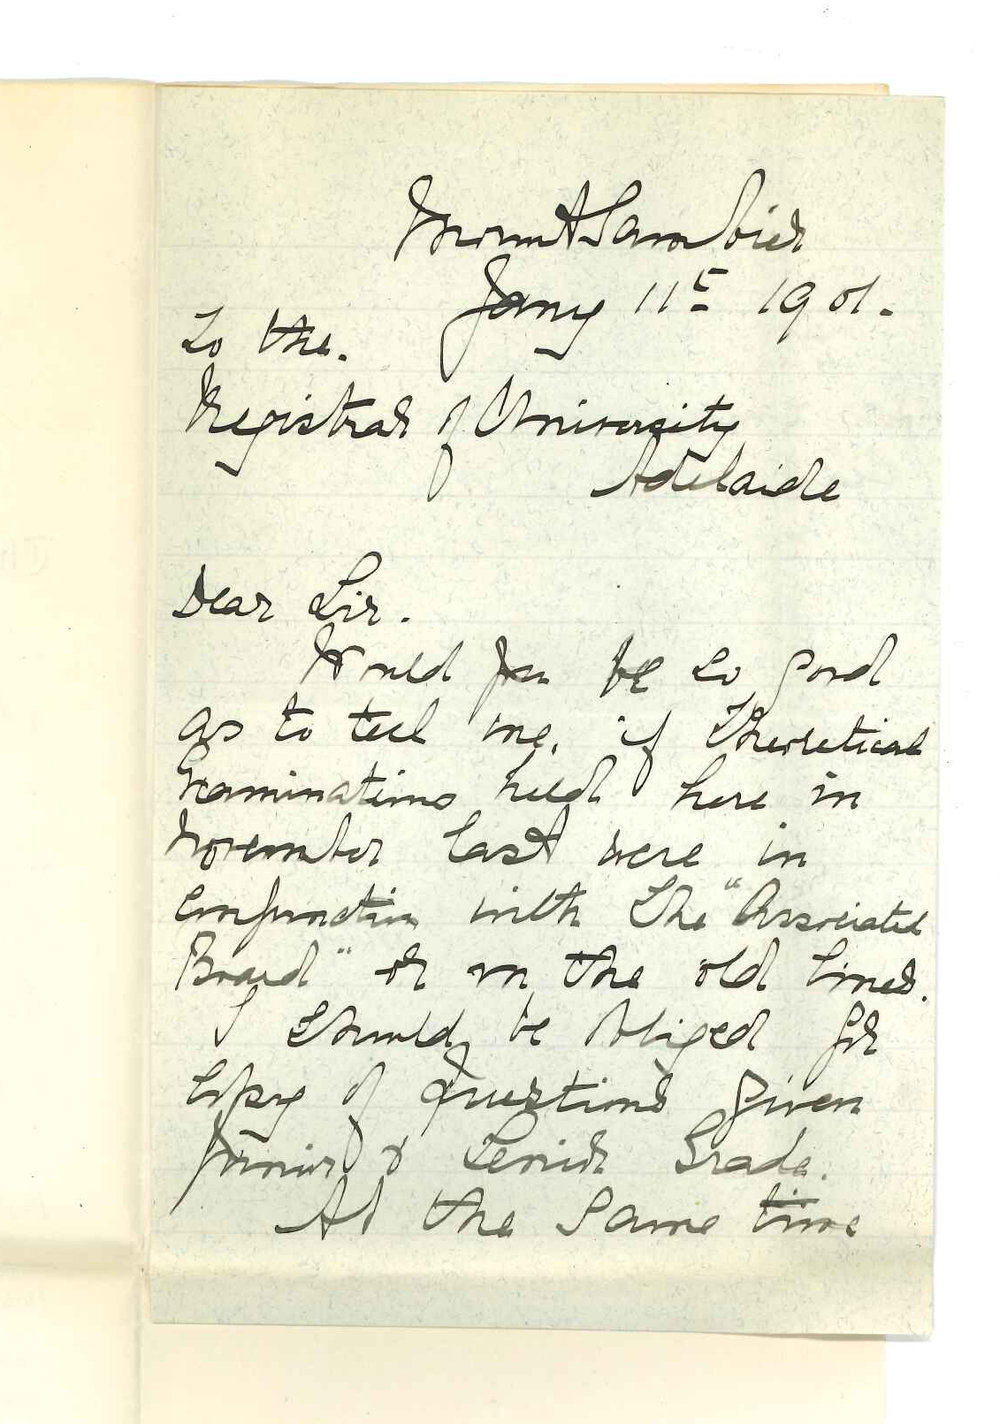 Mount Gambier
Jany 11th 1901.
To the.
Registrar of University
Adelaide
Dear Sir.
Would you be so good
as to tell me, if Theoretical
Examinations held here in
November last were in
conjunction with the "Associated
Board" or on the old lines.
I should be obliged for
copy of Questions given
Junior & Senior Grade.
At the same time